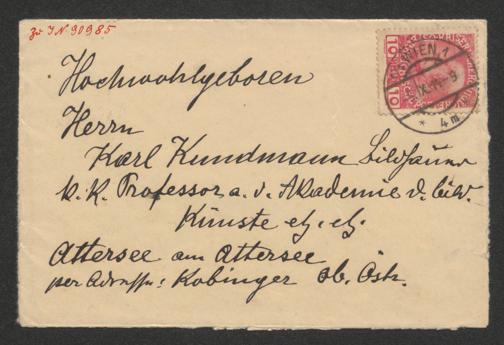 Zu IN 90985
WIEN 1
IX
9
* 4m
10
10
Hochwohlgeboren
Herrn
Karl Kundmann Bildhauer
k. k. Professor a. d. Akademie d. bild.
Künste etz. etz.
Attersee am Attersee
per Adresse: Kobinger Ob. Östr.